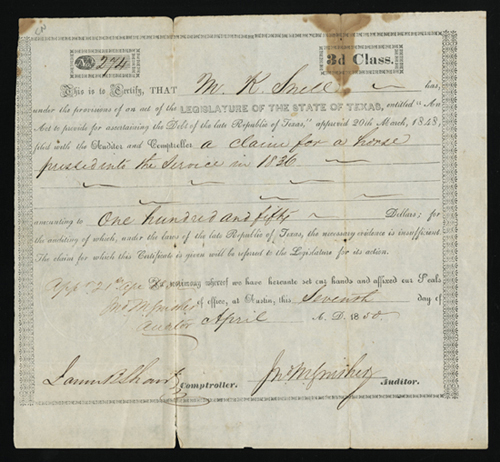 No 274
3d Class.
This is to Certify, THAT M. K. Snell has,
under the provisions of an act of the LEGISLATURE OF THE STATE OF TEXAS, entitled "An
Act to provide for ascertaining the Debt of the late Republic of Texas," approved 20th March, 1848,
filed with the Auditor and Comptroller a claim for a horse
pressed into the Service in 1836
amounting to One hundred and fifty Dollars; for
the auditing of which, under the laws of the late Republic of Texas, the necessary evidence is insufficient.
The claim for which this Certificate is given will be referred to the Legislature for its action.
In testimony whereof we have hereunto set our hands and affixed our Seals
of office, at Austin, this Seventh day of
Auditor April A. D. 1850.
James B Shaw Comptroller. Jno M Swisher Auditor.